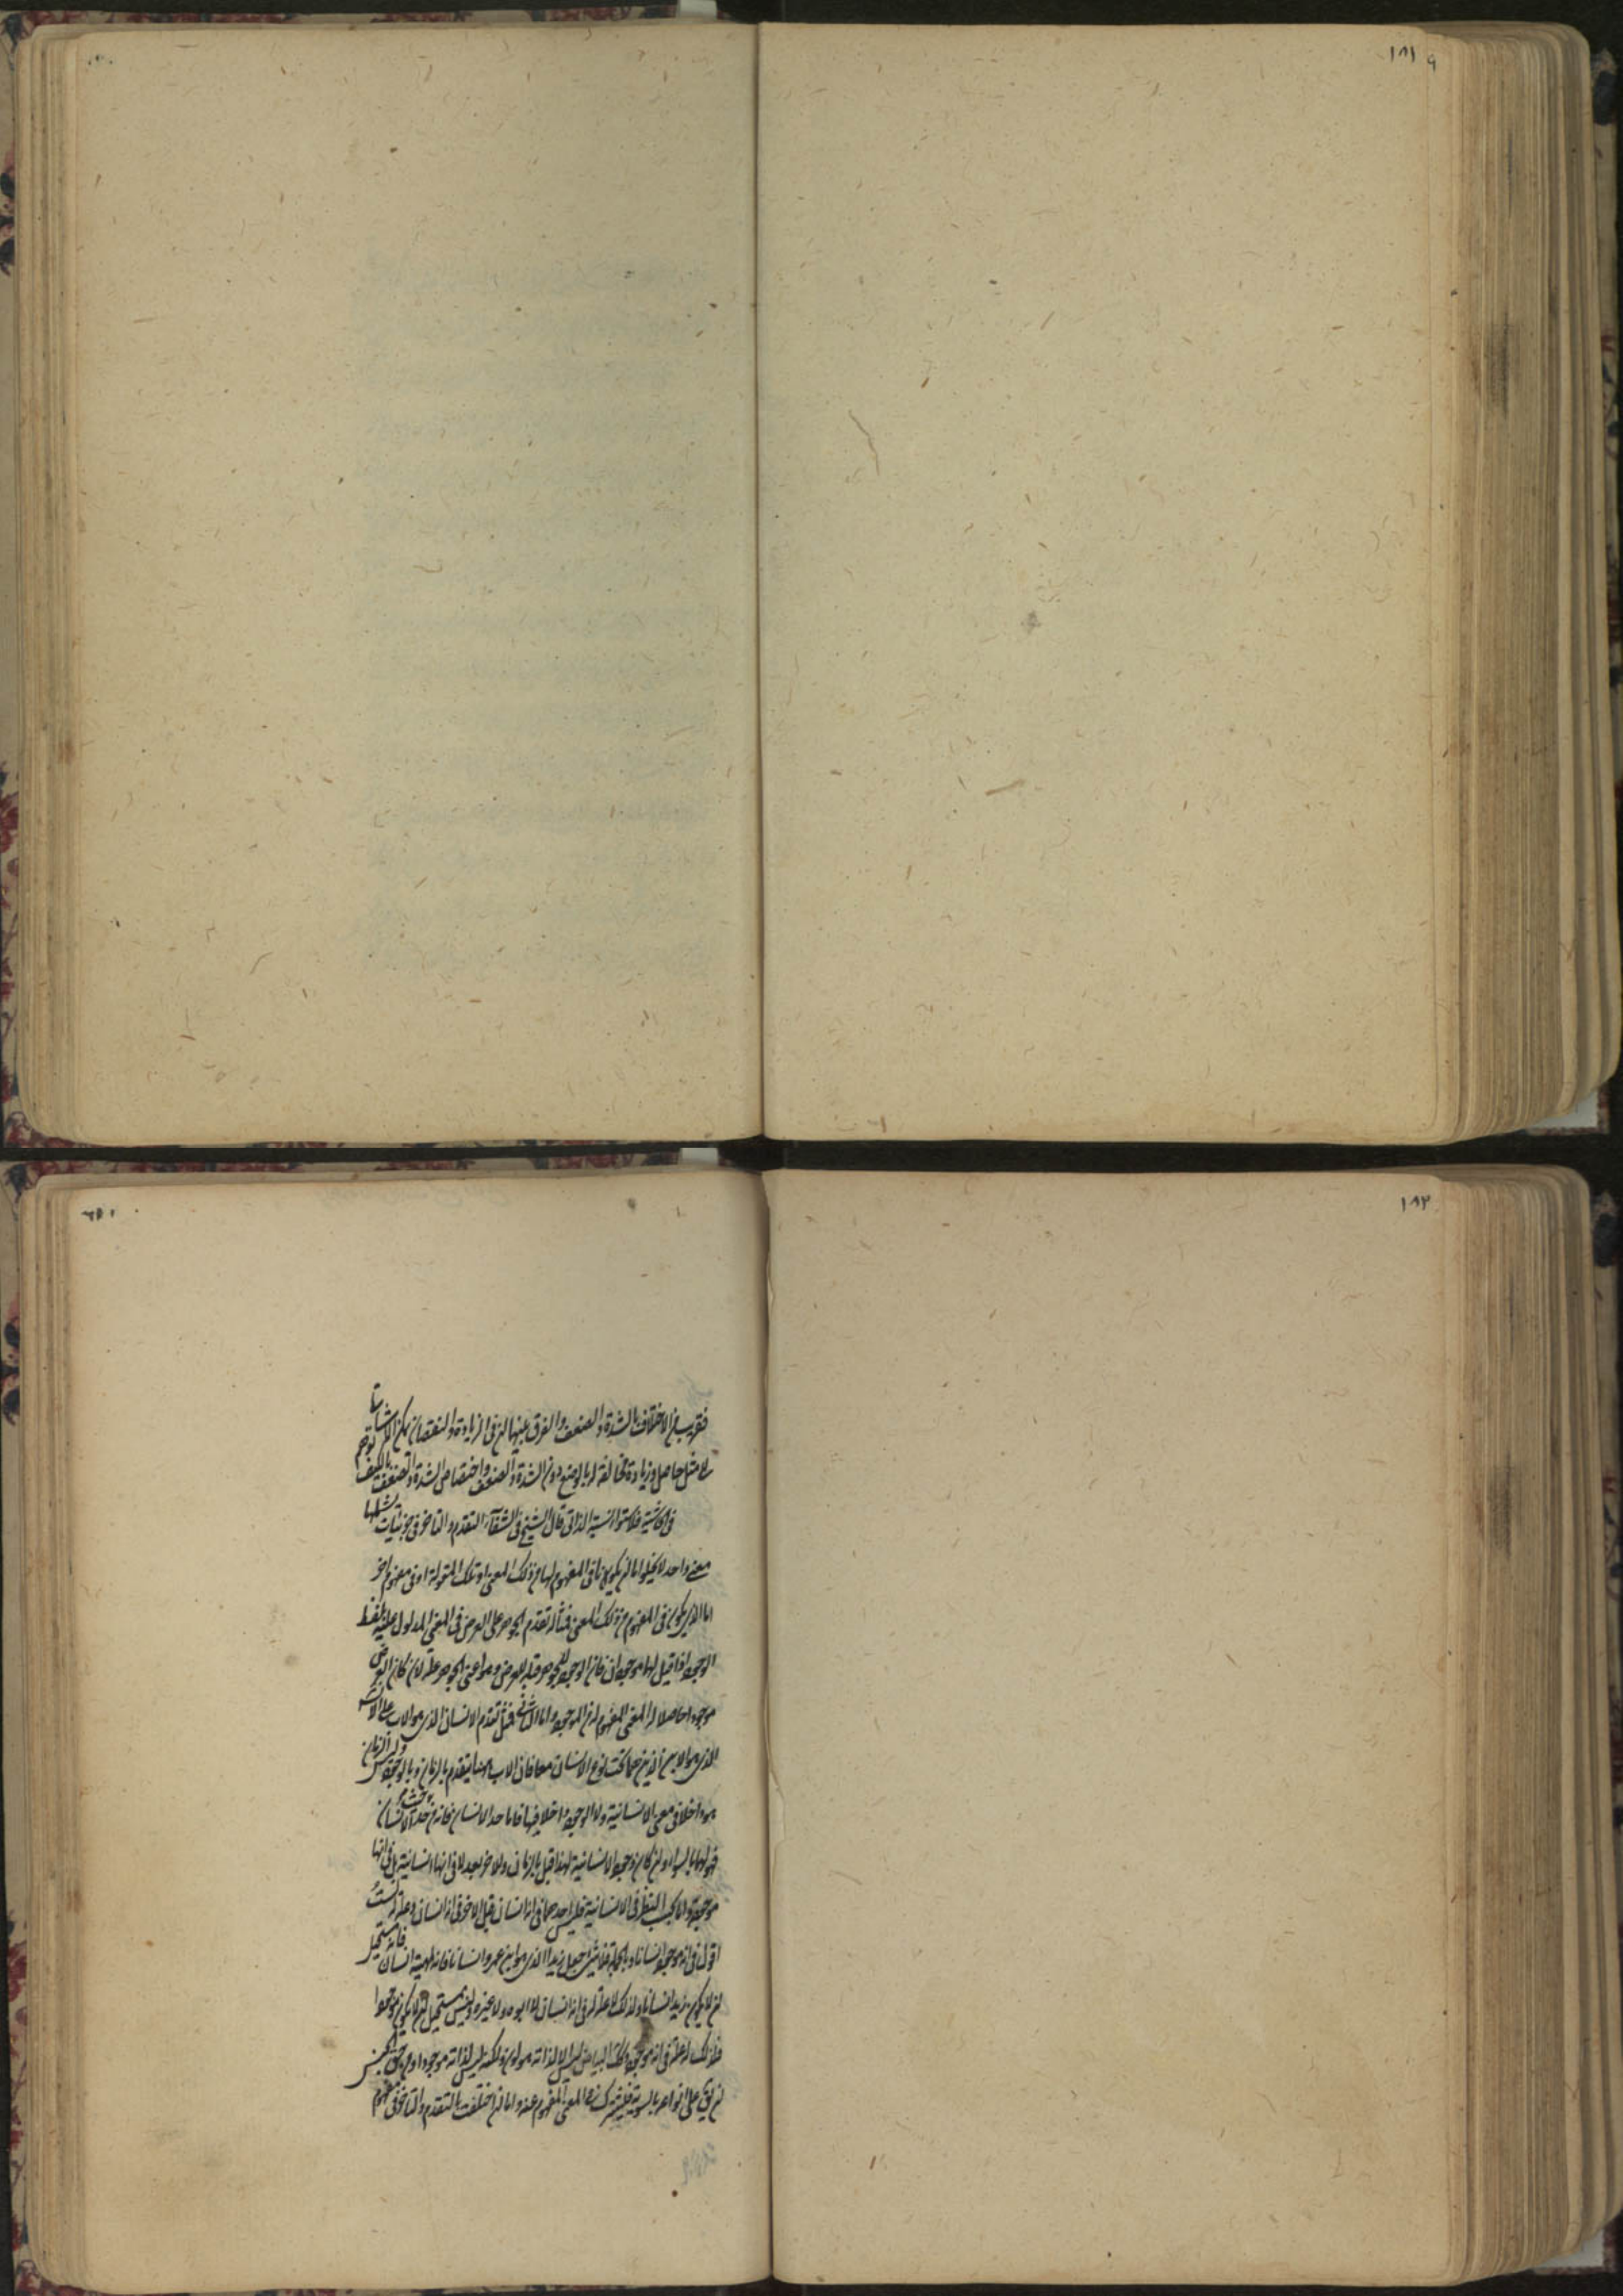 ١٨١ ٩
١٨٢
فقريب من الاختلاف بالشدة والضعف والفرق بينهما ان في الزيادة والنقصان يمكن ان
مثل حاصل وزيادة مخالفة له بالوضع دون الشدة والضعف واختصاص الشدة والضعف بالكيف
في الحاشية قال الشيخ في الشفاء التقدم والتاخر في جزئيات شملها
معنى واحد لا يخلوا اما ان يكونا في المفهوم لهما من ذلك المعنى او تلك المقولة او في مفهوم اخر
اما الذي يكون في المفهوم من ذلك المعنى فمثاله تقدم الجوهر على العرض في المعنى المدلول عليه بلفظ
الوجود اذا قيل لهما موجودان فان الوجود للجوهر قبله للعرض وهو اعنى الجوهر علة لان كان العرض
موجودا حاصلا له المعنى المفهوم من الموجود واما الثاني فمثل تقدم الانسان الذي هو الاب على الانسان
الذي هو الابن الذين هما تحت نوع الانسان معا فان الاب ههنا يتقدم بالزمان وبالوجود وليس الزمان
هو داخلا في معنى الانسانية ولا الوجود داخلا فيها فاما حد الانسان فانه من حيث هو حد الانسان
فهو لهما بالسواء وان كان وجود الانسانية لهذا قبل بالزمان وللاخر بعد لا في انها انسانية بل في انها
موجودة واما بحسب النظر في الانسانية فليس احدهما في انه انسان قبل الاخر في انه انسان وعلة له لست
اقول في انه موجود انسانا وبالجملة فلا شئ جعل زيدا الذي هو ابن عمرو انسانا فانه لمهية انسان فانه مستحيل
ان لا يكون زيد انسانا ولذلك لا علة له في انه انسان لا ابوه ولا غيره وليس مستحيل ان لا يكون موجودا
فلذلك له علة في انه موجود وكذلك البياض ليس الا لذاته هو لون ولكنه ليس لذاته موجودا ومن حق الجنس
ان يقع على انواعه بالسوية فيشترك في المعنى المفهوم عنه واما ان اختلفت بالتقدم والتاخر في مفهوم